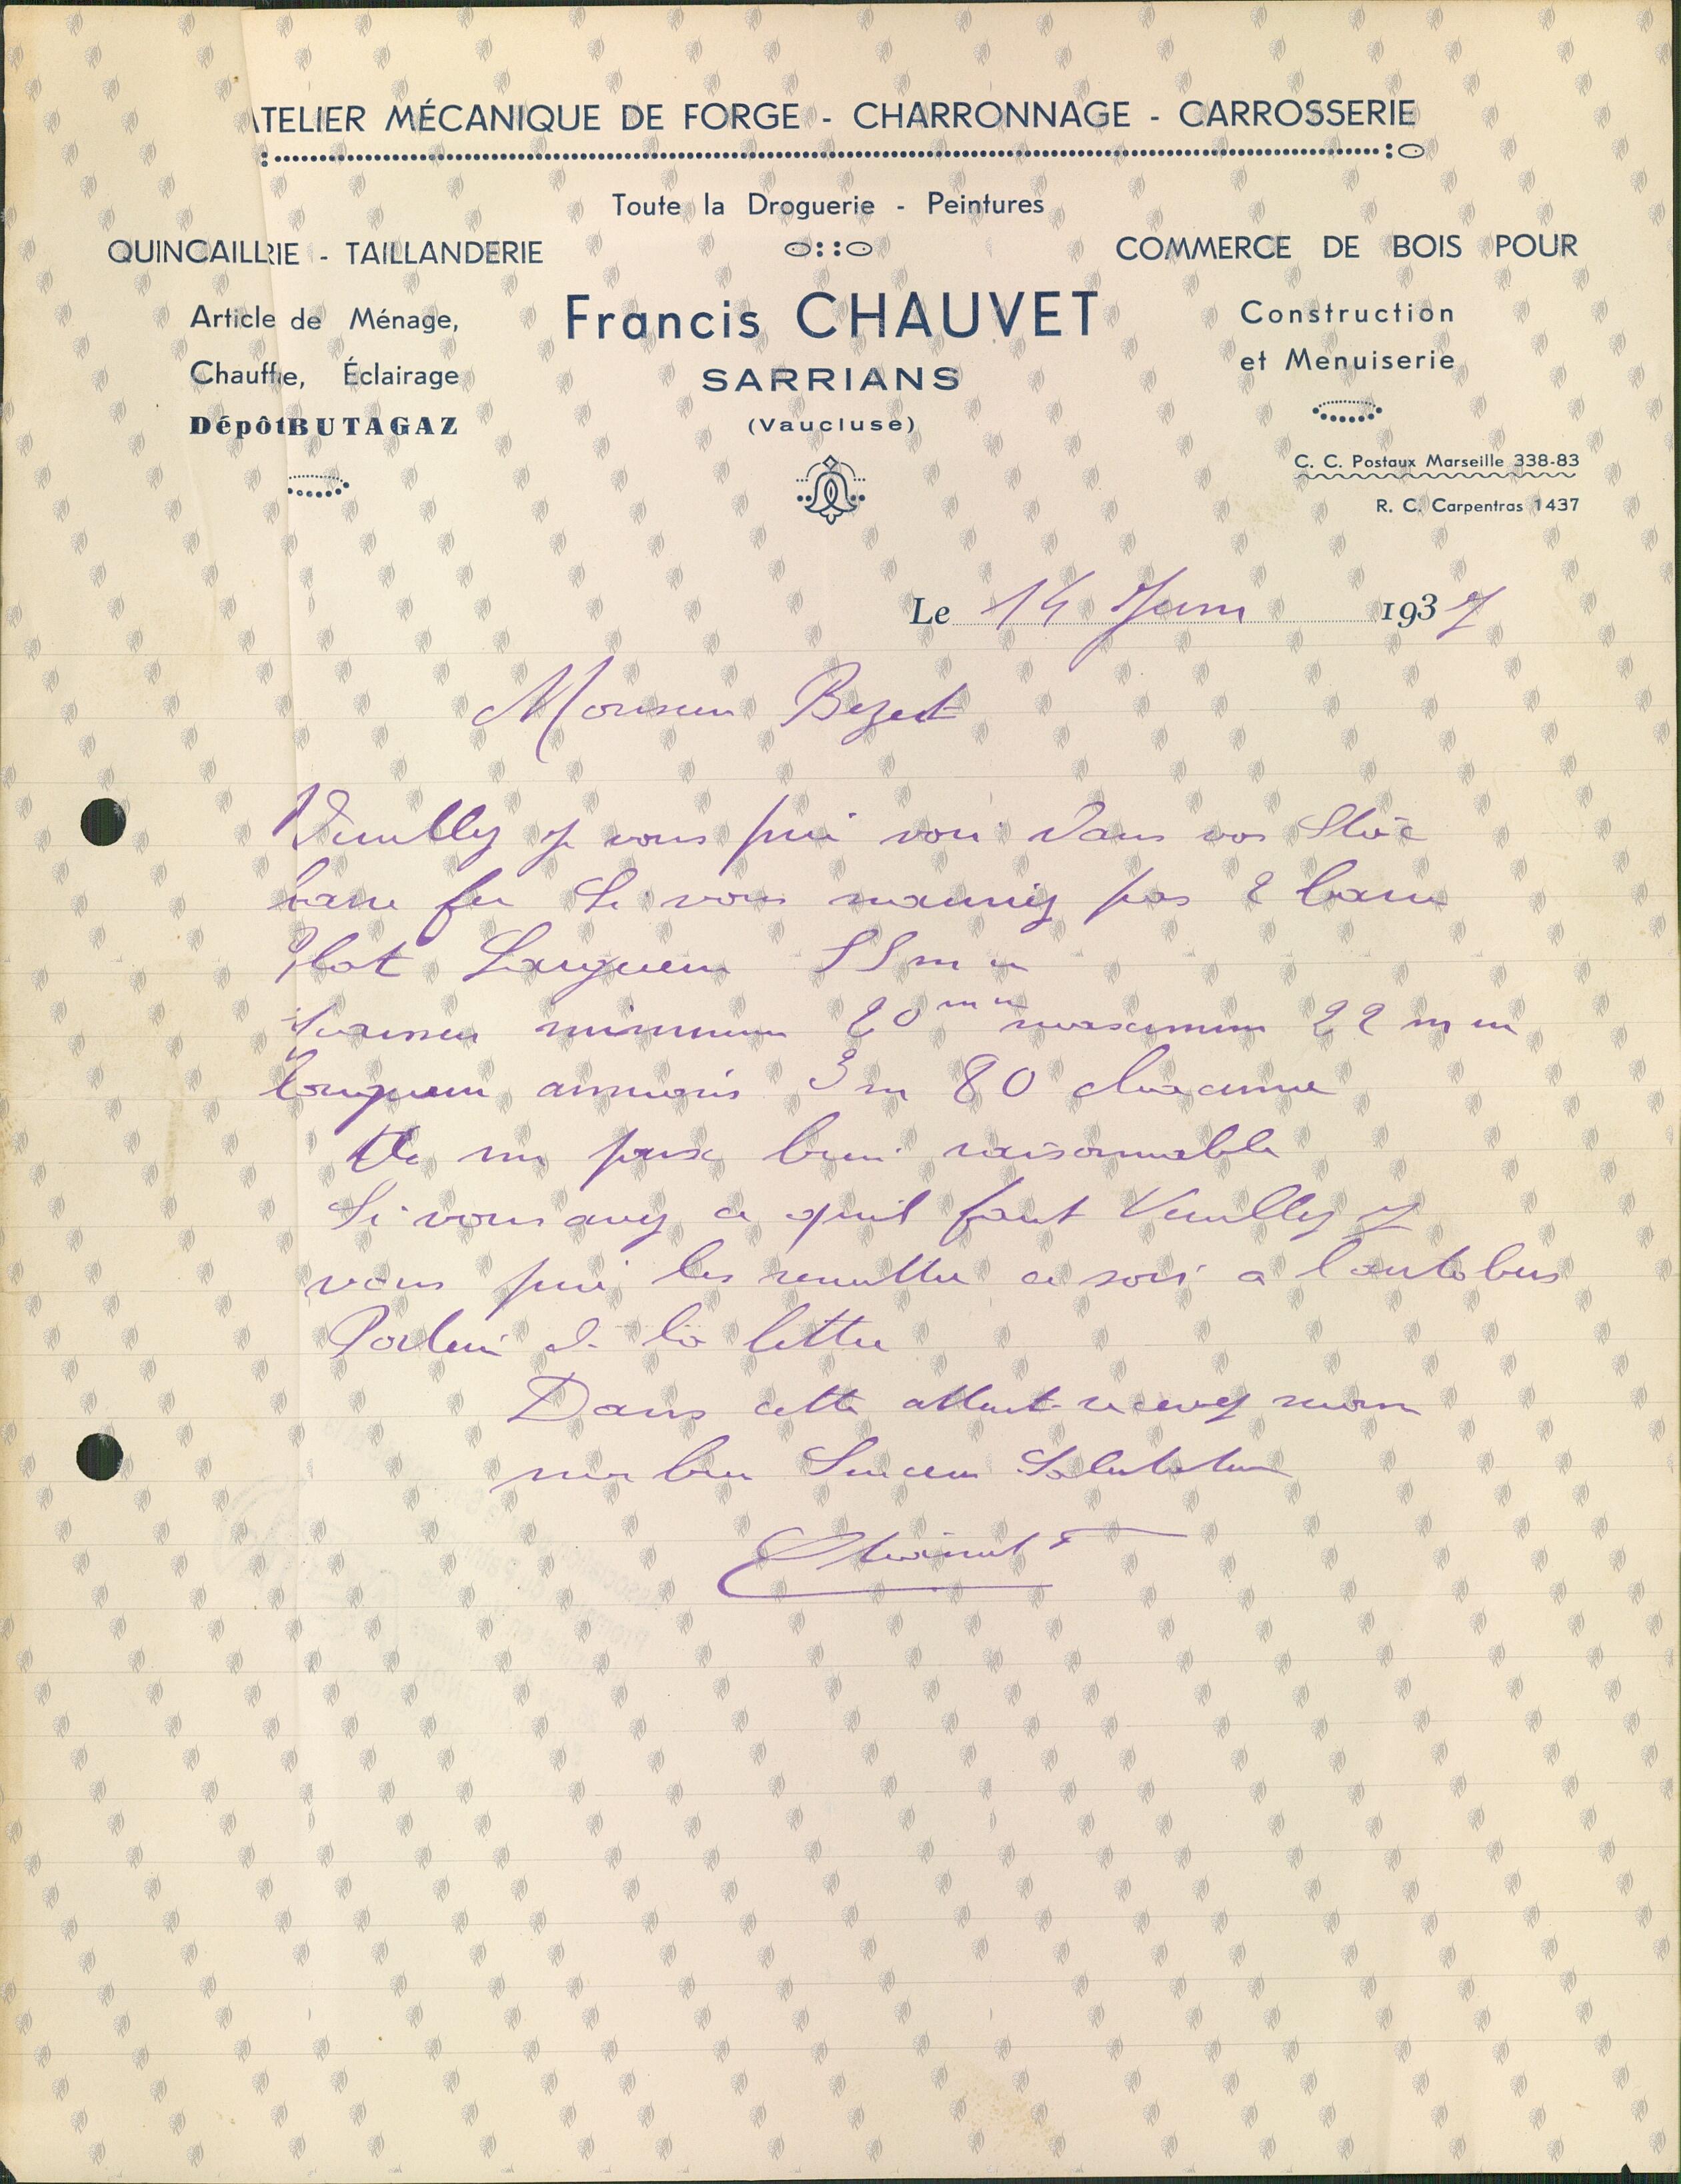 ATELIER MÉCANIQUE DE FORGE - CHARRONNAGE - CARROSSERIE
Toute la Droguerie - Peintures
QUINCAILLRIE - TAILLANDERIE
Article de Ménage,
Chauffe, Éclairage
Dépôt BUTAGAZ
Francis CHAUVET
SARRIANS
(Vaucluse)
COMMERCE DE BOIS POUR
Construction
et Menuiserie
C. C. Postaux Marseille 338-83
R. C. Carpentras 1437
Le 14 Juin 1937
Monsieur Bezert
Veuillez je vous prie voir dans vos Stoc
barre fer Si vous pas 2 barre
Plat Largueur 55 m m
minimum 20 mm maximum 22 m m
longueur 3 m 80 chacune
De un prix bien raisonnable
Si vous avez ce quil faut Veuillez je
vous prie les remettre ce soir a lautobus
Porteur de la lettre
Dans cette attente recevez mon
sieur Sincere Salutation
Chauvet F